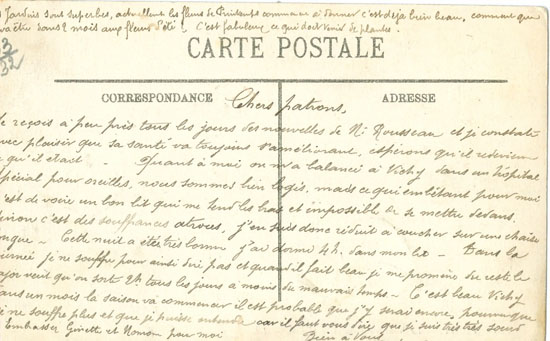 Jardins sont superbes, actuellement les fleurs de Printemps commence à donner c'est déjà bien beau, comment que
va être sous 2 mois aux fleurs d'été ! C'est fabuleux ce qui doit venir de plantes.
CARTE POSTALE
CORRESPONDANCE ADRESSE
Chers patrons,
Je reçois à peu près tous les jours des nouvelles de Mr Rousseau et je constate
avec plaisir que sa santé va toujours s'améliorant, espérons qu'il redevienne
qu'il était - Quant à moi on m'a balancé à Vichy dans un hôpital
spécial pour oreilles, nous sommes bien logés, mais ce qui embêtant pour moi
c'est de voir un bon lit qui me tend les bras et impossible de se mettre dedans,
sinon c'est des souffrances atroces, j'en suis donc réduit à coucher sur une chaise
longue - Cette nuit a été très bonne j'ai dormi 4h. dans mon lit - Dans la
journée je ne souffre pour ainsi dire pas et quand il fait beau je me promène du reste le
major veut qu'on sort 2h. tous les jours à moins de mauvais temps - C'est beau Vichy
dans un mois la saison va commencer il est probable que j'y serai encore, pourvu que
je ne souffre plus et que je puisse entendre car il faut vous dire que je suis très très sourd
Embrasser Ginette et Nonom pour moi Bien à Vous